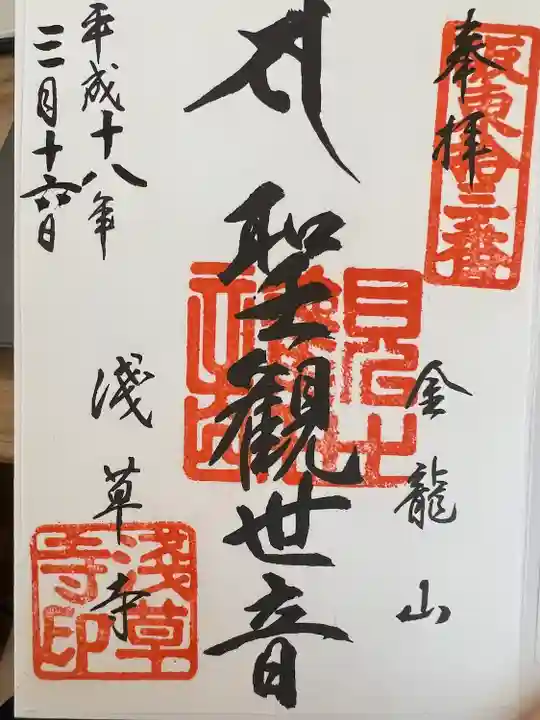 奉拝
坂東拾三番
金龍山
聖観世音
平成十八年
三月十六日
淺草寺
淺草
寺印